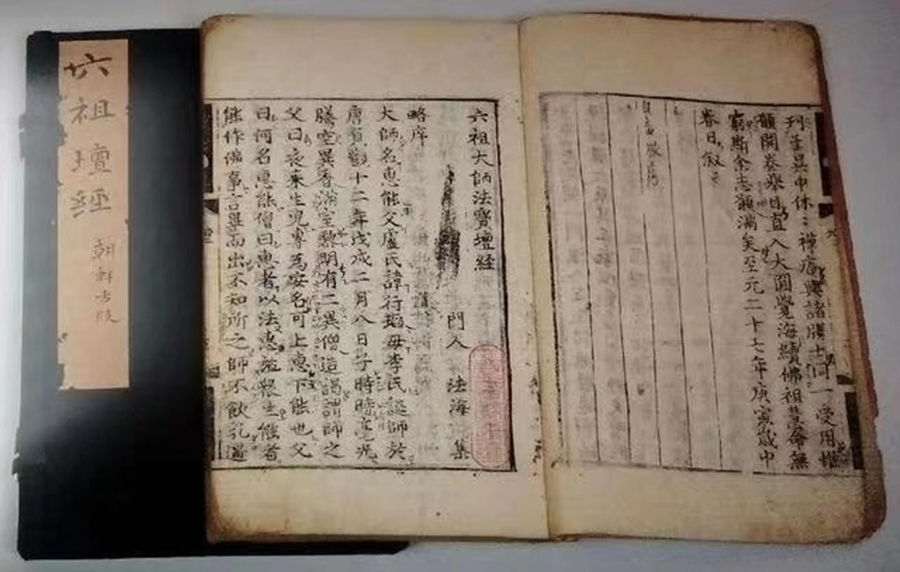 刊于吳中休〻禪庵與諸勝士同一受用惟
願開卷舉目直入大圓覺海續佛祖慧命無
窮斯余志願滿矣至元二十七年庚寅歲中
春日叙
六祖大師法寶壇經
門人 法海 集
略序
大師名惠能父盧氏諱行瑫母李氏誕師於
唐貞觀十二年戊戌二月八日子時時毫光
騰空異香滿室黎明有二異僧造謁謂師之
父曰夜來生兒專為安名可上惠下能也父
曰何名惠能僧曰惠者以法惠施衆生能者
能作佛事言畢而出不知所之師不飲乳遇
六祖壇經
朝鮮古版